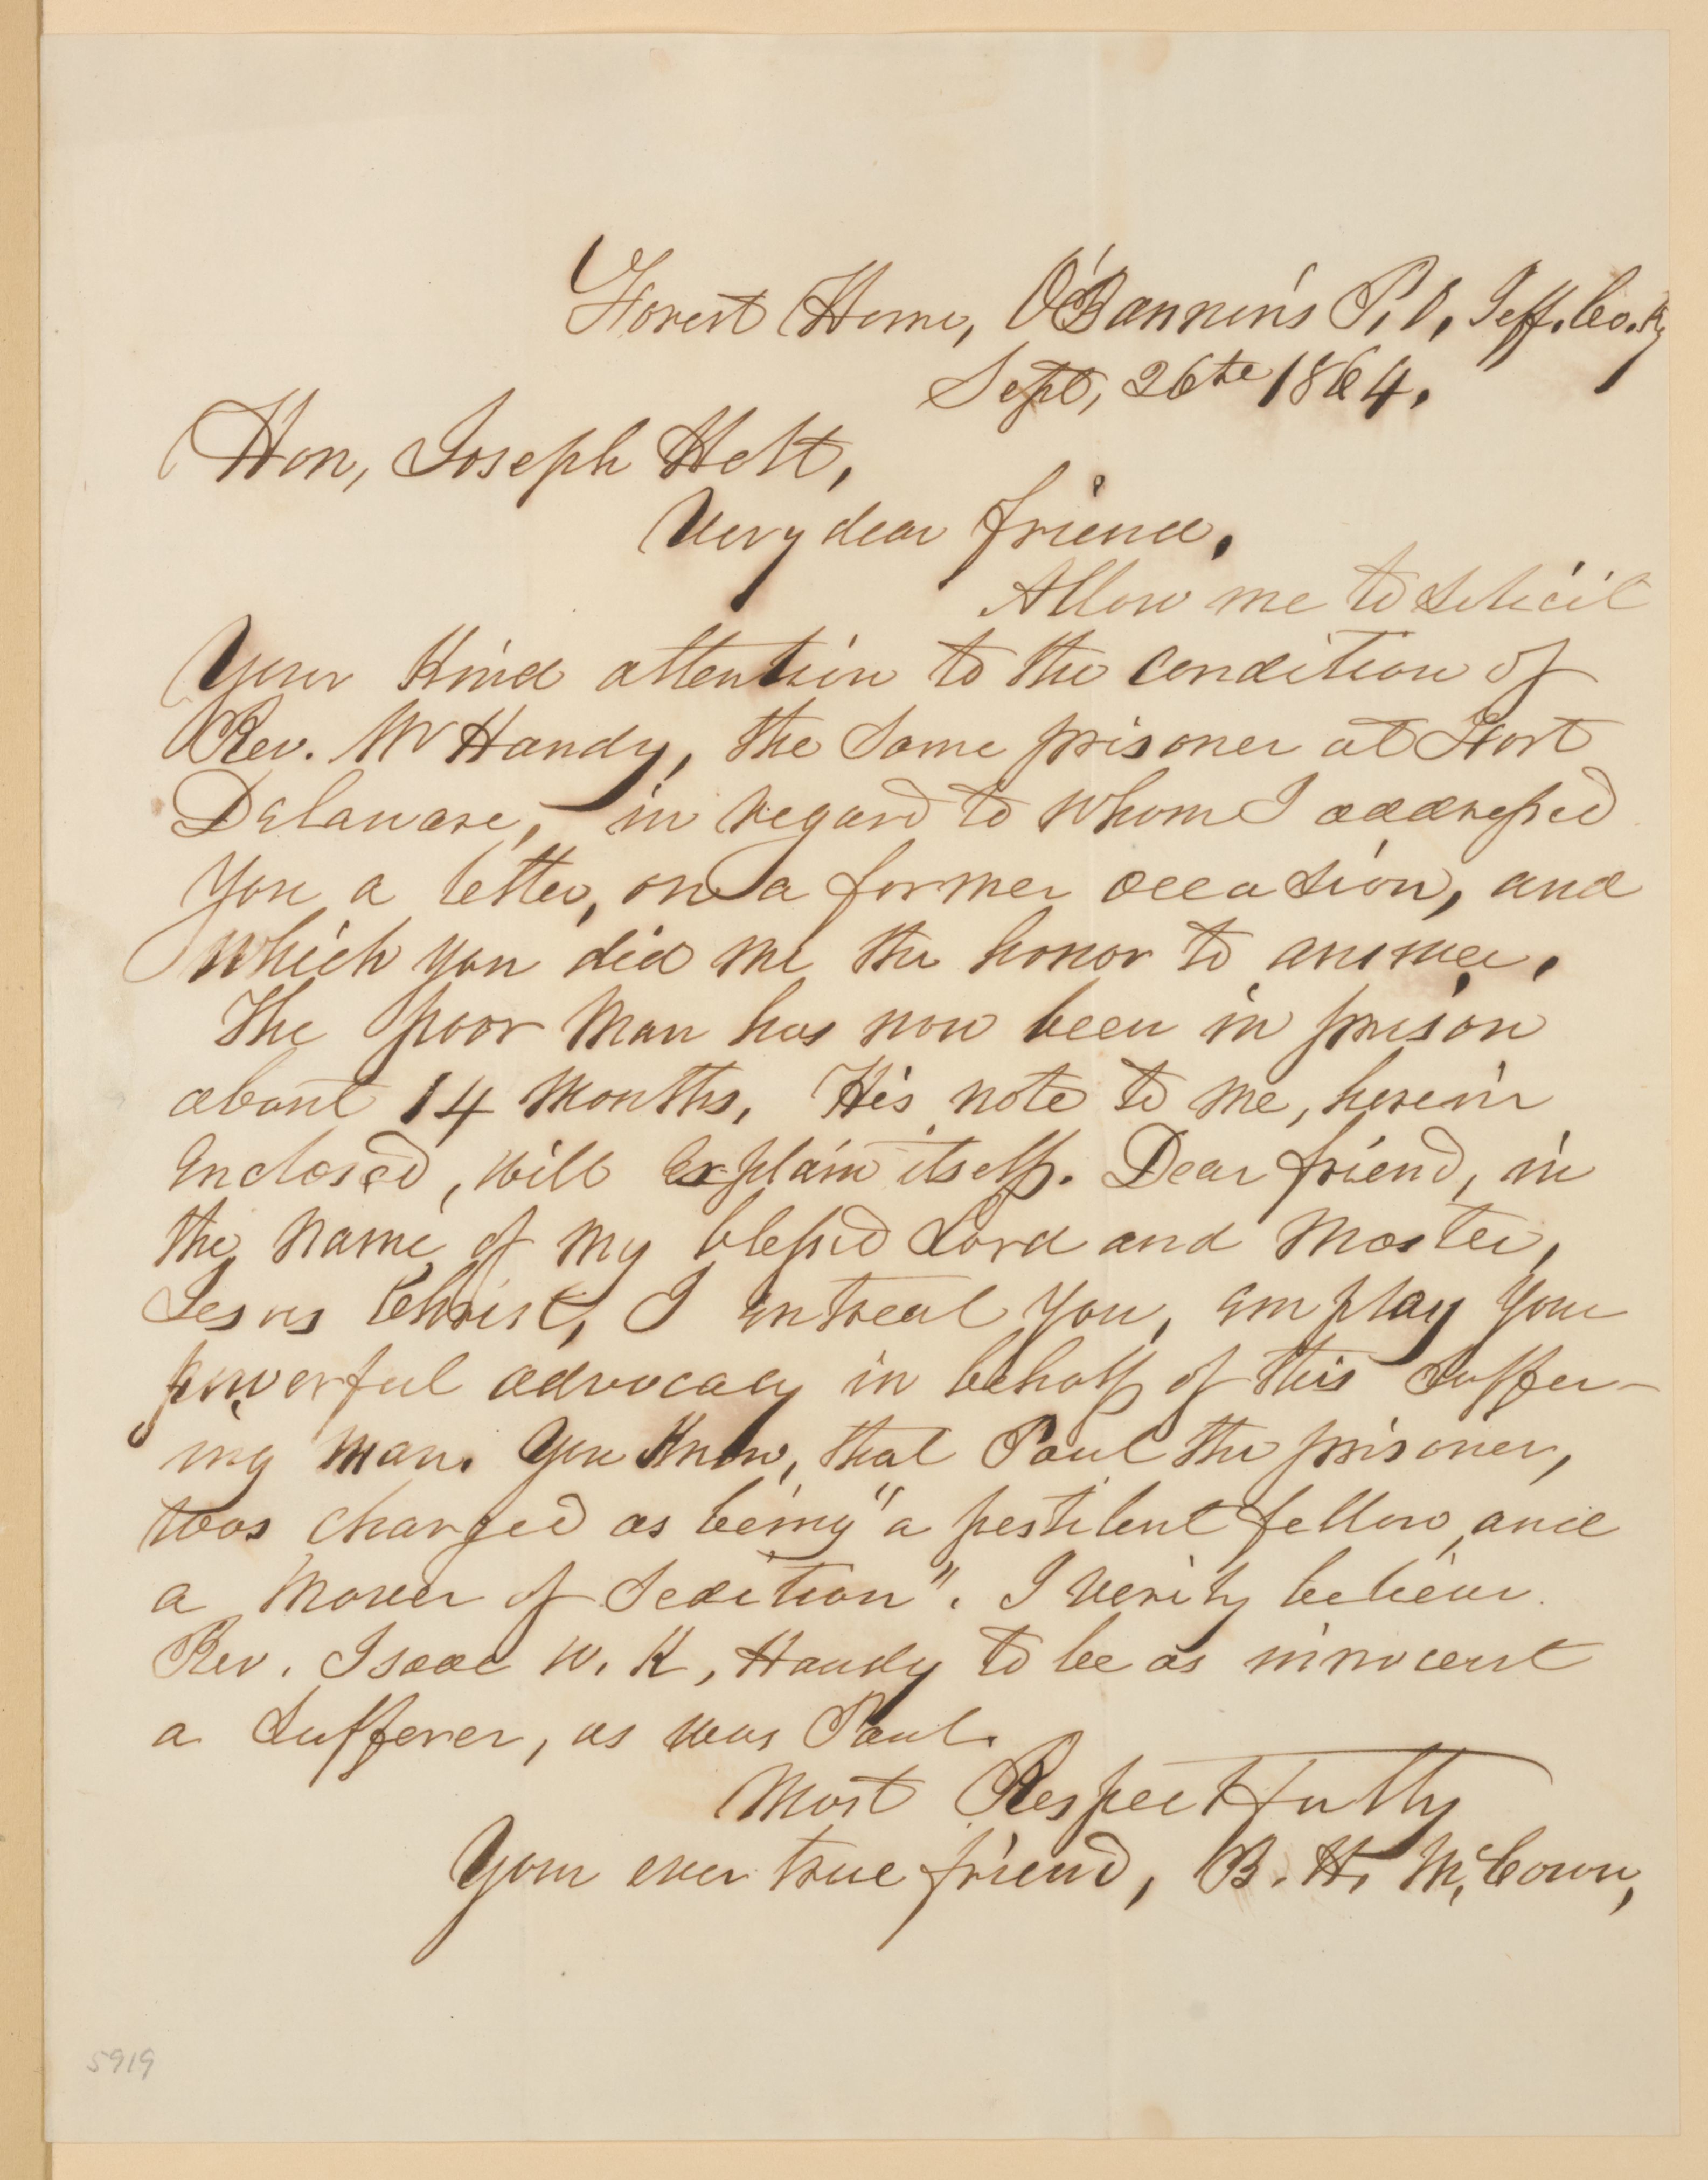 Forest Home, O'Bannon's P. O. Jeff. Co. Ky
Sept, 26th 1864.
Hon, Joseph Holt,
Very dear friend,
Allow me to solicit
Your kind attention to the condition of
Rev. Mr Handy, the same prisoner at Fort
Delaware, in regard to whom I addressed
you a letter, on a former occasion, and
which you did me the honor to answer.
The poor man has now been in prison
about 14 months. His note to me, herein
enclosed, will explain itself. Dear friend, in
the name of my blessed Lord and Master,
Jesus Christ, I entreat you, employ your
powerful advocacy in behalf of this suffer-
ing man. You know, that Paul the prisoner,
was charged as being "a pestilent fellow, and
a mover of sedition". I verily believe
Rev. Isaac W. K. Handy to be as innocent
a sufferer, as was Paul.
Most Respectfully
Your ever true friend, B. H. McCown,
5919